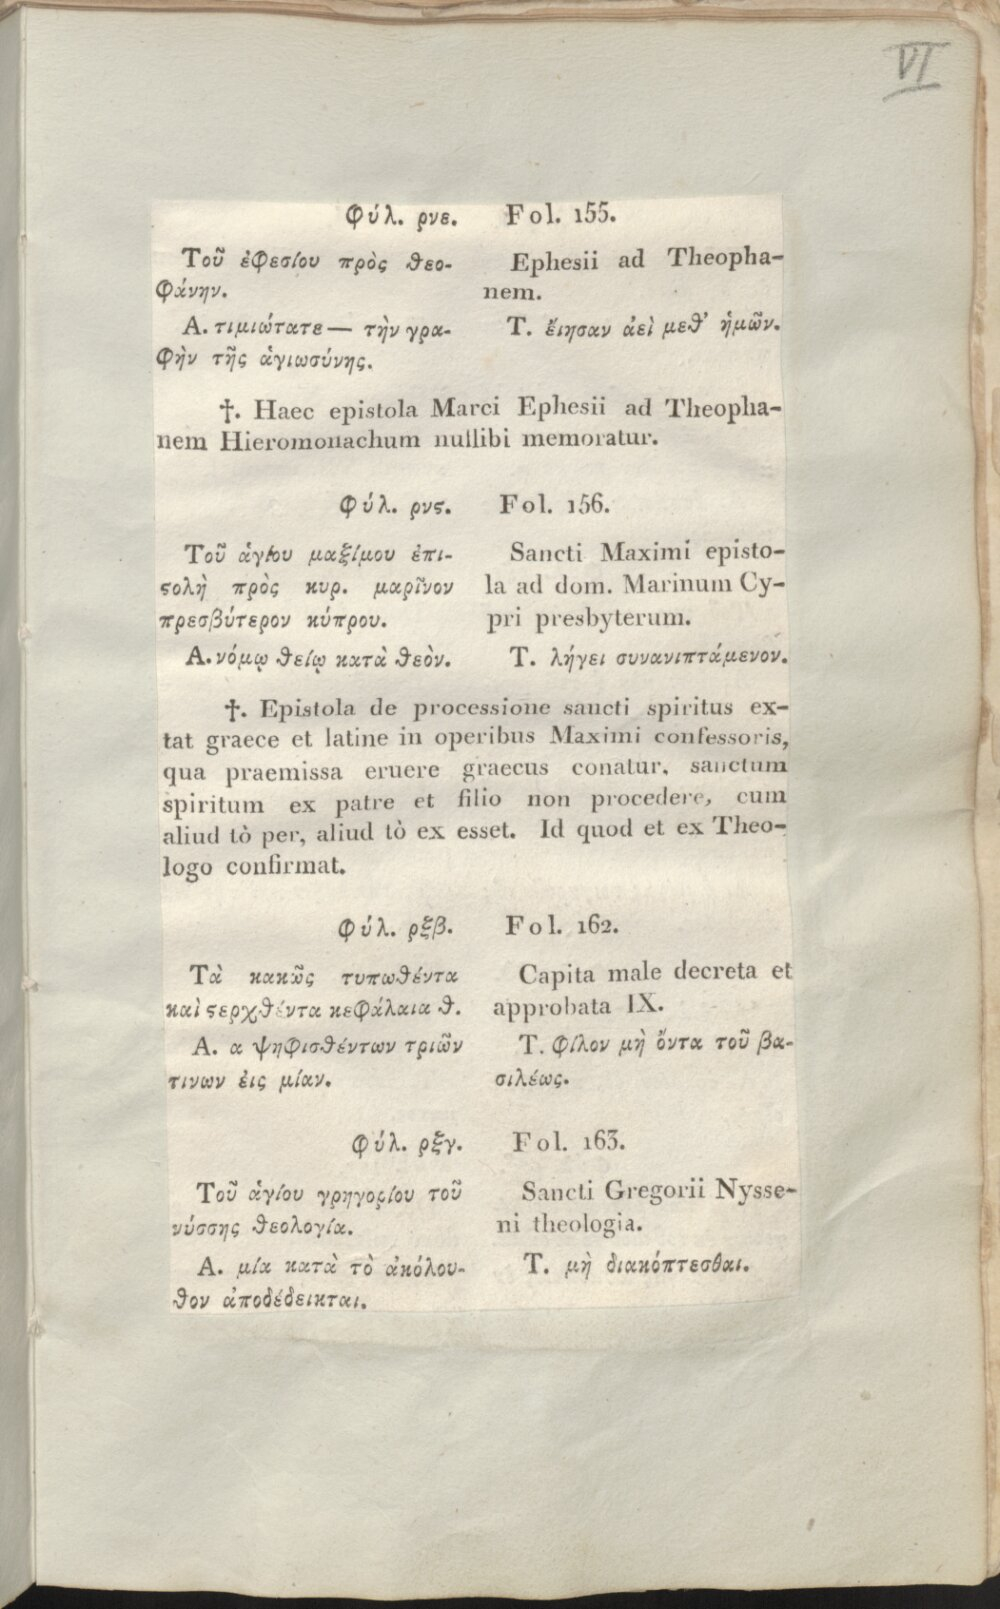 VI
Φύλ. ρνε. Fol. 155.
Τοῦ ἐφεσίου πρὸς θεο- Ephesii ad Theopha-
φάνην. nem.
Α. τιμιώτατε — τὴν γρα- Τ. ἔιησαν ἀεὶ μεθ’ ἡμῶν.
φὴν τῆς ἁγιωσύνης.
†. Haec epistola Marci Ephesii ad Theopha-
nem Hieromonachum nullibi memoratur.
Φύλ. ρνς. Fol. 156.
Τοῦ ἁγίου μαξίμου ἐπι- Sancti Maximi episto-
ϛολὴ πρὸς κυρ. μαρῖνον la ad dom. Marinum Cy-
πρεσβύτερον κύπρου. pri presbyterum.
Α. νόμῳ θείῳ κατὰ θεὸν. Τ. λήγει συνανιπτάμενον.
†. Epistola de processione sancti spiritus ex-
tat graece et latine in operibus Maximi confessoris,
qua praemissa eruere graecus conatur, sanctum
spiritum ex patre et filio non procedere, cum
aliud tò per, aliud tò ex esset. Id quod et ex Theo-
logo confirmat.
Φύλ. ρξβ. Fol. 162.
Τὰ κακῶς τυπωθέντα Capita male decreta et
καὶ ϛερχθέντα κεφάλαια θ. approbata IX.
Α. α ψηφισθέντων τριῶν Τ. φίλον μὴ ὄντα τοῦ βα-
τινων ἐις μίαν. σιλέως.
Φύλ. ρξγ. Fol. 163.
Τοῦ ἁγίου γρηγορίου τοῦ Sancti Gregorii Nysse-
νύσσης θεολογία. ni theologia.
Α. μία κατὰ τὸ ἀκόλου- Τ. μὴ διακόπτεσθαι.
θον ἀποδέδεικται.